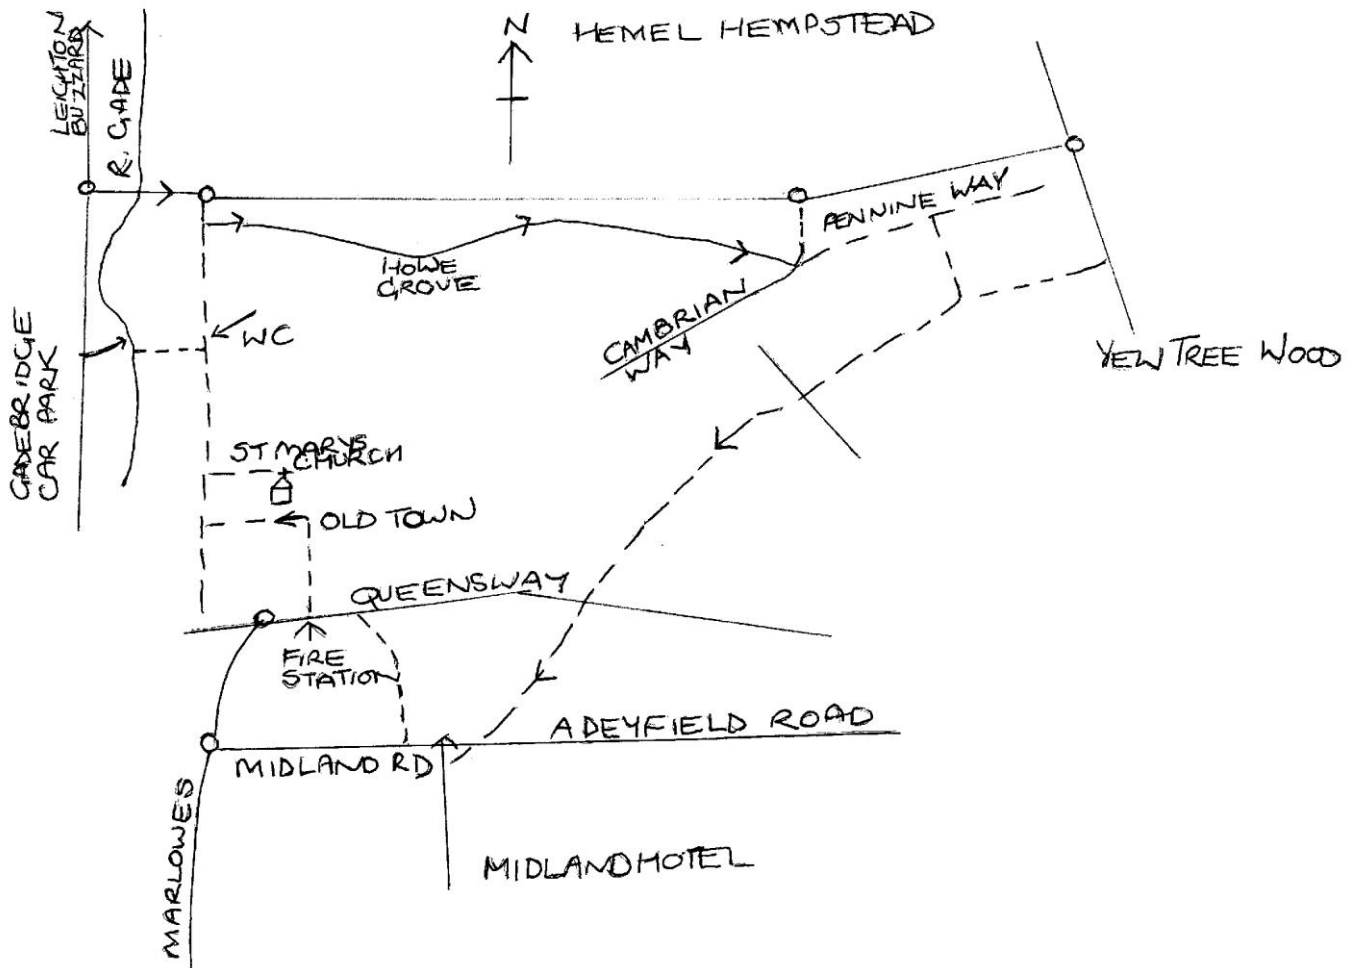 N
HEMEL HEMPSTEAD
LEIGHTON
BUZZARD
R. GADE
PENNINE WAY
HOWE
GROVE
WC
CAMBRIAN
WAY
YEW TREE WOOD
GADEBRIDGE
CAR PARK
ST MARYS
CHURCH
OLD TOWN
QUEENSWAY
FIRE
STATION
ADEYFIELD ROAD
MIDLAND RD
MARLOWES
MIDLAND HOTEL